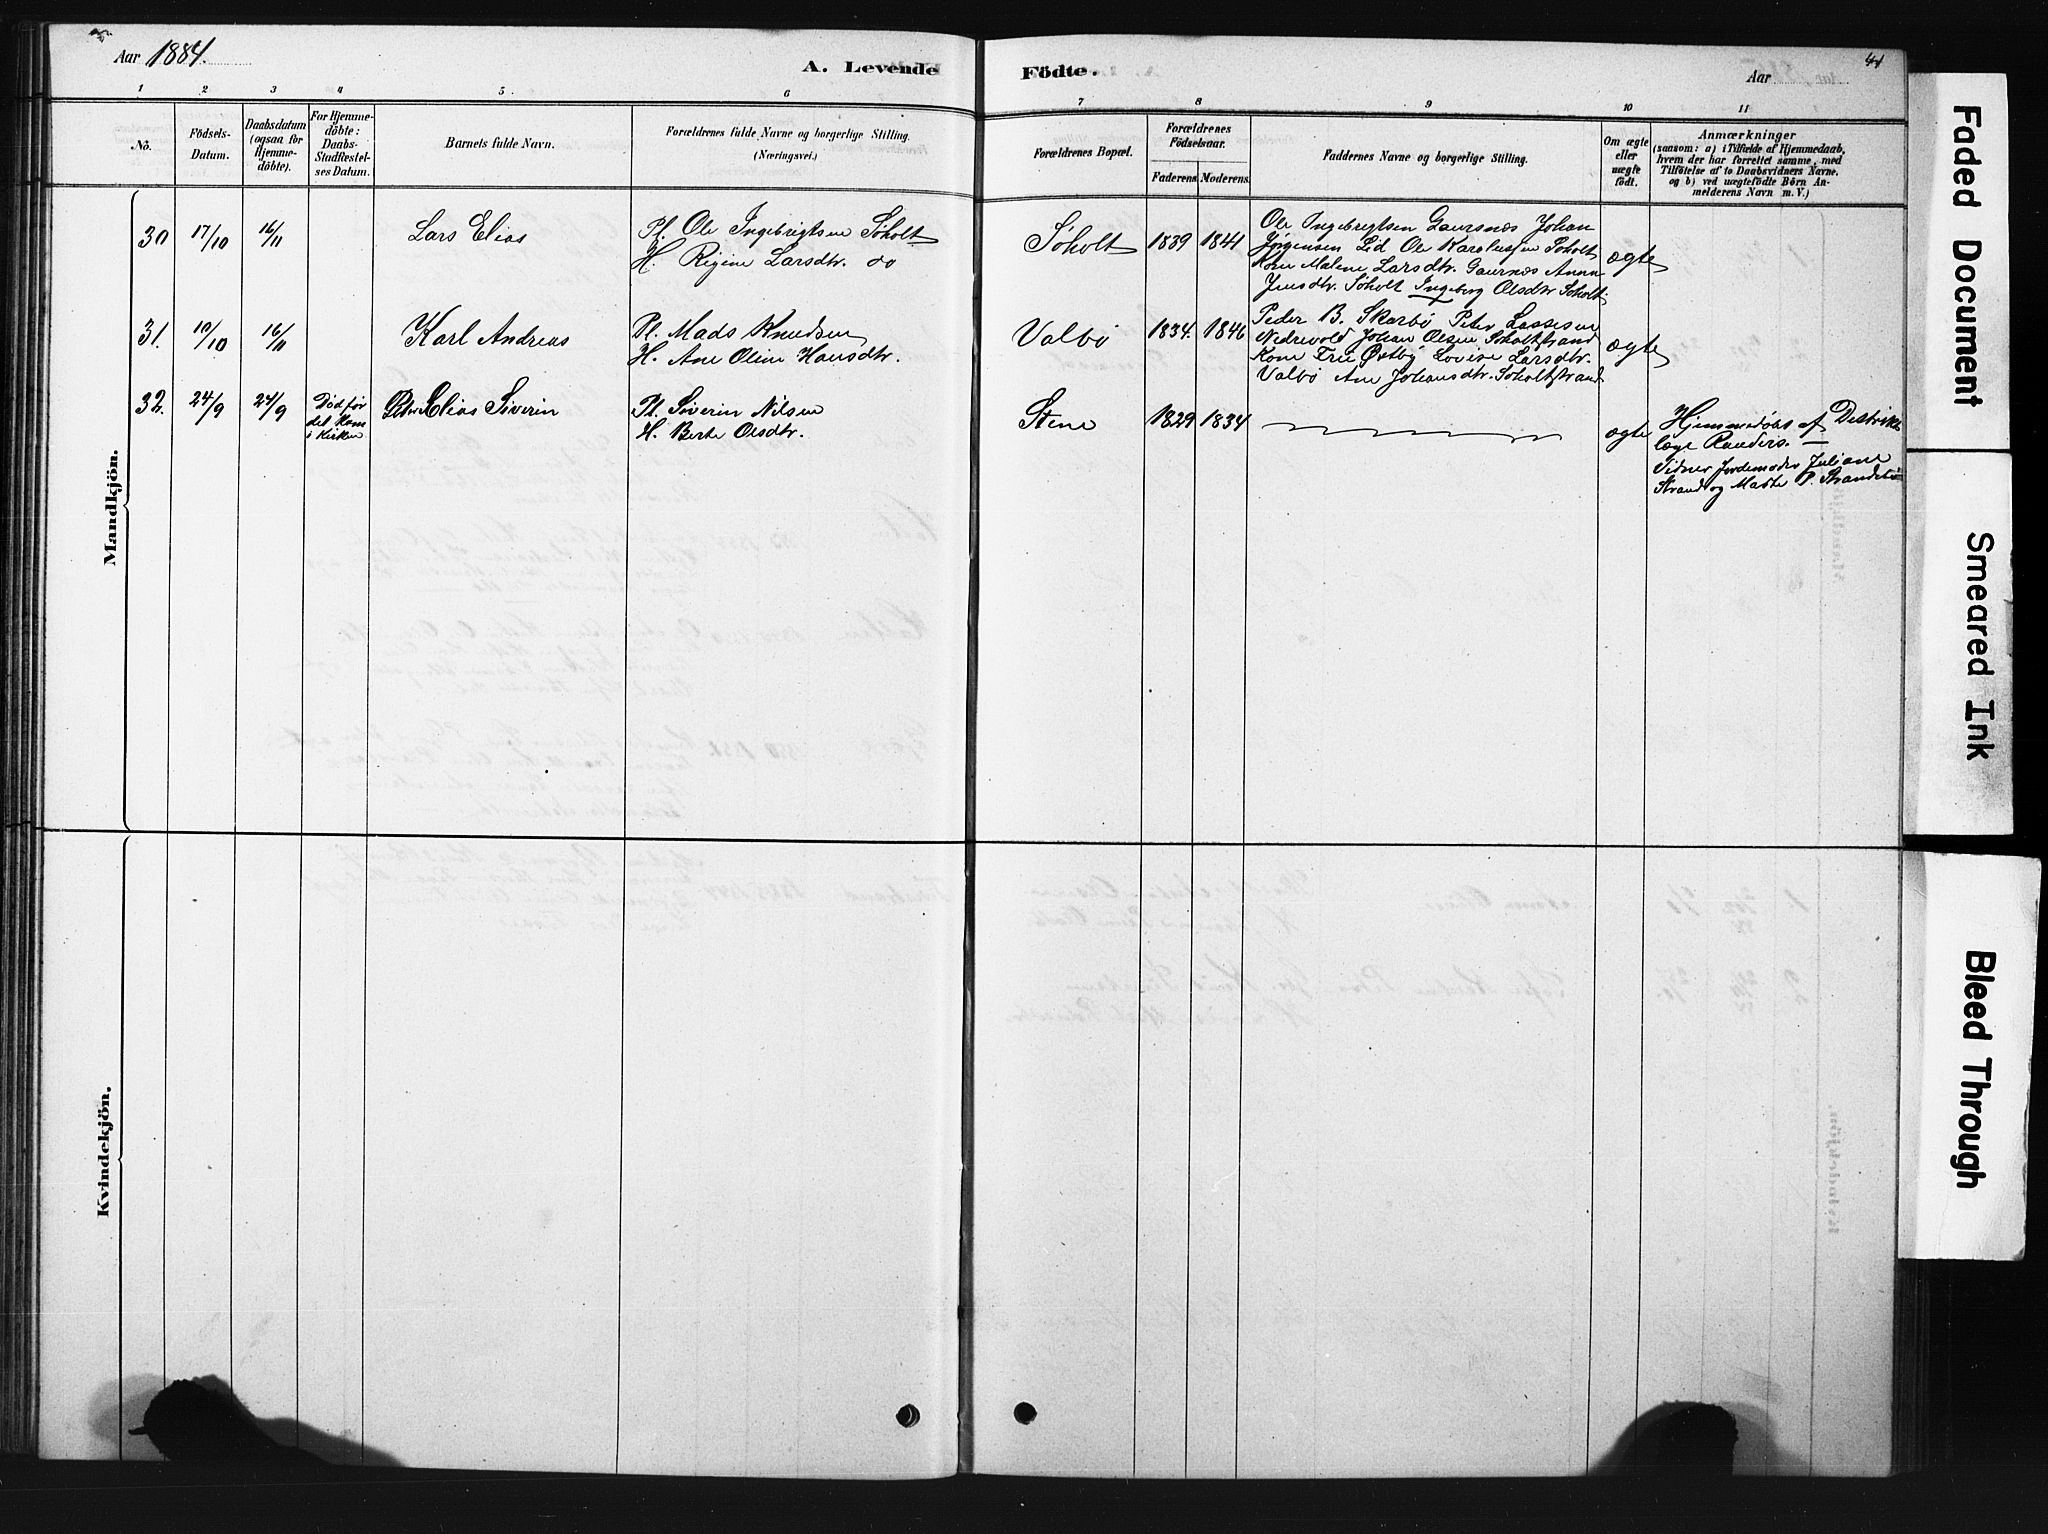 Aar 1884.
A. Levende Födte.
Aar
41
1 2 3 4 5 6 7 8 9 10 11
No.
Födsels-
Datum.
Daabsdatum
(ogsaa for
Hjemme-
döbte).
For Hjemme-
döbte:
Daabs-
Stadfestel-
ses Datum.
Barnets fulde Navn.
Forældrenes fulde Navne og borgerlige Stilling.
(Næringsvei.)
Forældrenes Bopæl.
Forældrenes
Födselsaar.
Faderens Moderens
Faddernes Navne og borgerlige Stilling.
Om ægte
eller
uægte
födt.
Anmærkninger
(saasom: a) i Tilfælde af Hjemmedaab,
hvem der har forrettet samme, med
Tilföielse af to Daabsvidners Navne.
og b) ved uægtefödte Börn An-
melderens Navn m. V.)
Mandkjön.
30 17/10 16/11
Lars Elias
Pl. Ole Ingebrigtsen Søholt
H. Regine Larsdtr. do
Søholt 1839 1841
Ole Ingebrigtsen Gaursnæs Johan
Jørgensen Lid Ole Karolussen Søholt
Kone Malene Larsdtr. Gaursnæs Anna
Jensdtr. Søholt Ingeborg Olsdtr Søholt.
ægte
31. 10/10 16/11
Karl Andreas
Pl. Mads Knudsen
H. Ane Oline Hansdtr.
Valbø 1834. 1846
Peder B. Skarbø Peter Lassesen
Nedrevold Johan Olsen Søholtstrand
Kone Fru Østby Lovise Larsdtr.
Valbø Ane Johansdtr. Søholtstrand
ægte
32. 24/9 24/9
Død før
det kom
i Kirken
Peter Elias Siverin
Pl. Siverin Nilsen
H. Berte Olsdtr.
Stene 1829 1834
ægte
Hjemmedøbt af Distrikts
læge Randers. —
Vidner Jordemoder Juliane
Strand og Marte P. Strand
Kvindekjön.
Faded Document
Smeared Ink
Bleed Through